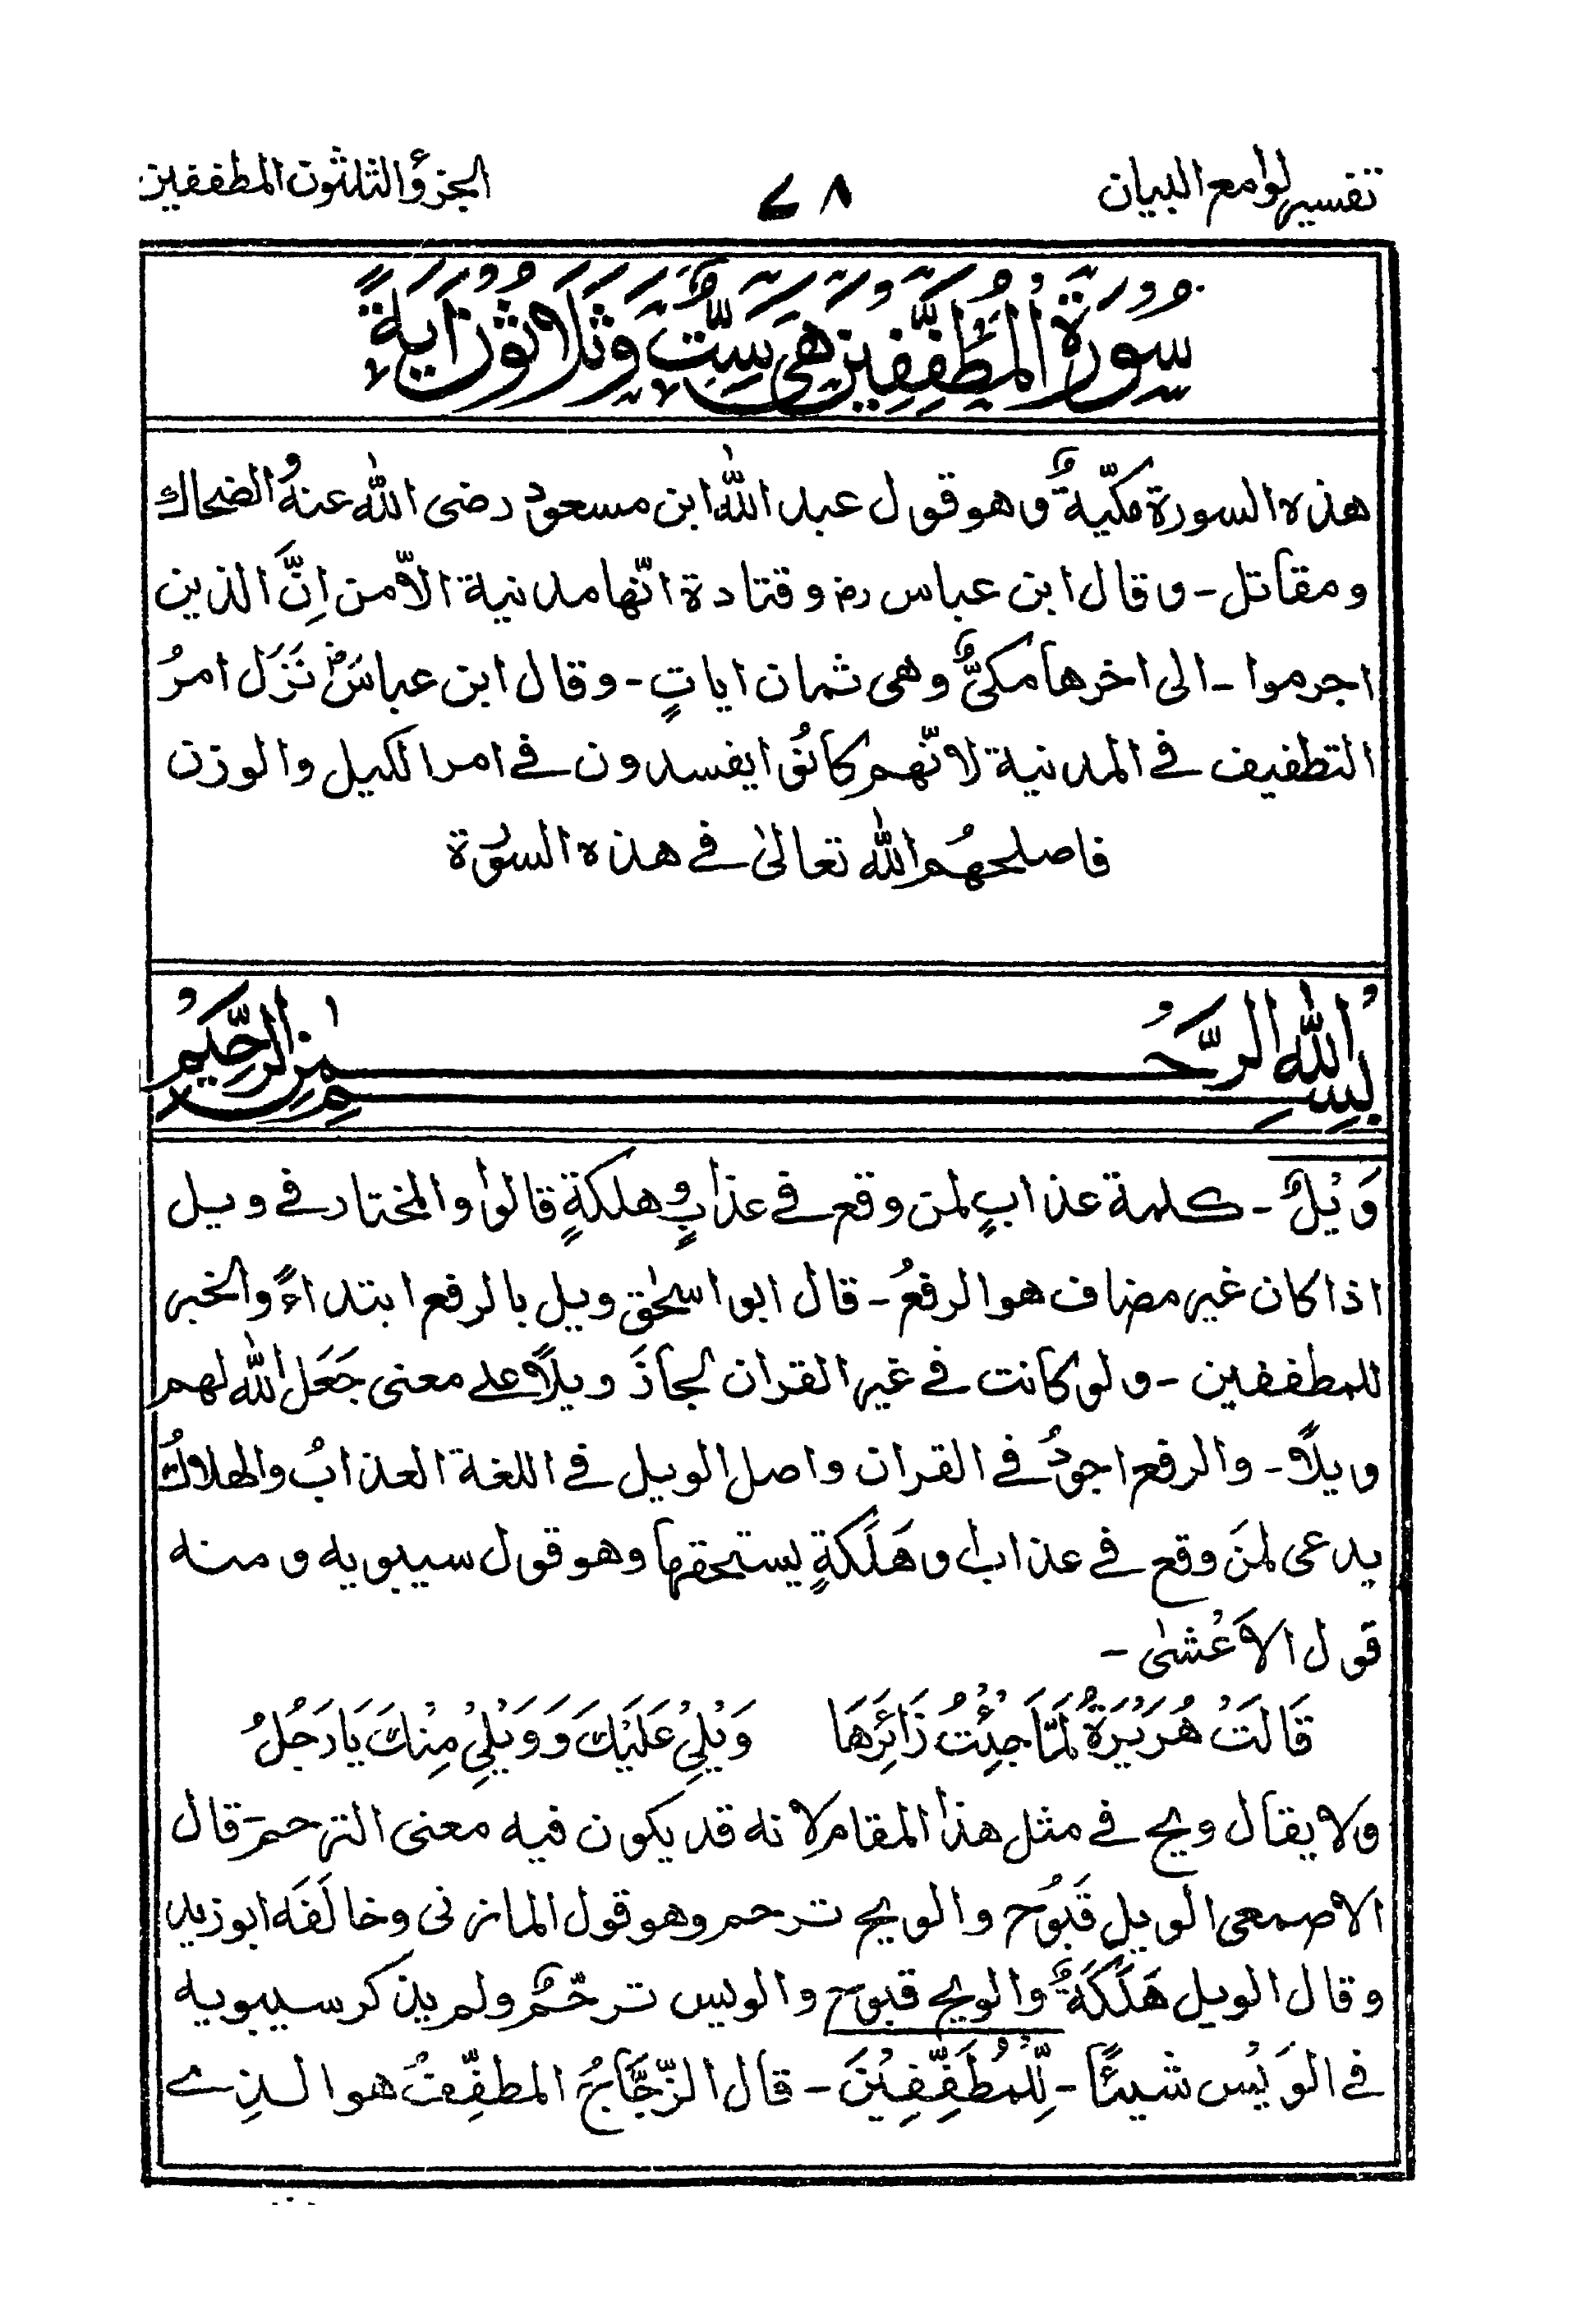 تفسير لوامع البيان
٧٨
الجزؤ الثلثون المطففين
سُوْرَةُ الْمُطَفِّفِيْنَ هِيَ سِتٌّ وَّثَلَاثُوْنَ اٰيَةً
هذه السورة مكّيةٌ وهو قول عبد اللّٰه ابن مسعود رضى اللّٰه عنهُ الضحاك
ومقاتل - وقال ابن عباس رض وقتادة انّها مدنية الّا من اِنَّ الذين
اجرموا - الى اخرها مكىٌّ وهى ثمان اياتٍ - وقال ابن عباسؓ نَزَل امرُ
التطفيف فے المدنية لانّهم كانوا يفسدون فے امر الكيل والوزن
فاصلحهُم اللّٰه تعالىٰ فے هذه السوُرة
بِسْمِ اللّٰهِ الرَّحْمٰنِ الرَّحِيْمِ
وَيْلٌ - كلمة عذابٍ لمن وقع فے عذابٍ وهلكةٍ قالوا والمختار فے ويل
اذا كان غير مضاف هو الرفعُ - قال ابو اسحٰق ويل بالرفع ابتداءً والخبر
للمطففين - ولو كانت فے غير القران لجازَ ويلًا على معنى جَعَل اللّٰه لهم
ويلًا - والرفع اجودُ فے القران واصل الويل فے اللغة العذابُ والهلاكُ
يدعى لمَن وقع فے عذاب او هَلَكةٍ يستحقها وهو قول سيبويه ومنه
قول الاَعْشىٰ -
قَالَتْ هُرَيْرَةُ لَمَّا جِئْتُ زَائِرَهَا وَيْلِيْ عَلَيْكَ وَوَيْلِيْ مِنْكَ يَا رَجُلُ
ولا يقال ويح فے مثل هذا المقام لانه قد يكون فيه معنى الترحم قال
الاصمعى الويل قَبُوْح والويح ترحم وهو قول المازنى وخالَفَه ابو زيد
وقال الويل هَلَكَةٌ والويح قبوح والويس ترحّمٌ ولم يذكر سيبويه
فے الوَيْس شيئًا - لِّلْمُطَفِّفِيْنَ - قال الزّجَّاجُ المطفِّفُ هو الذے